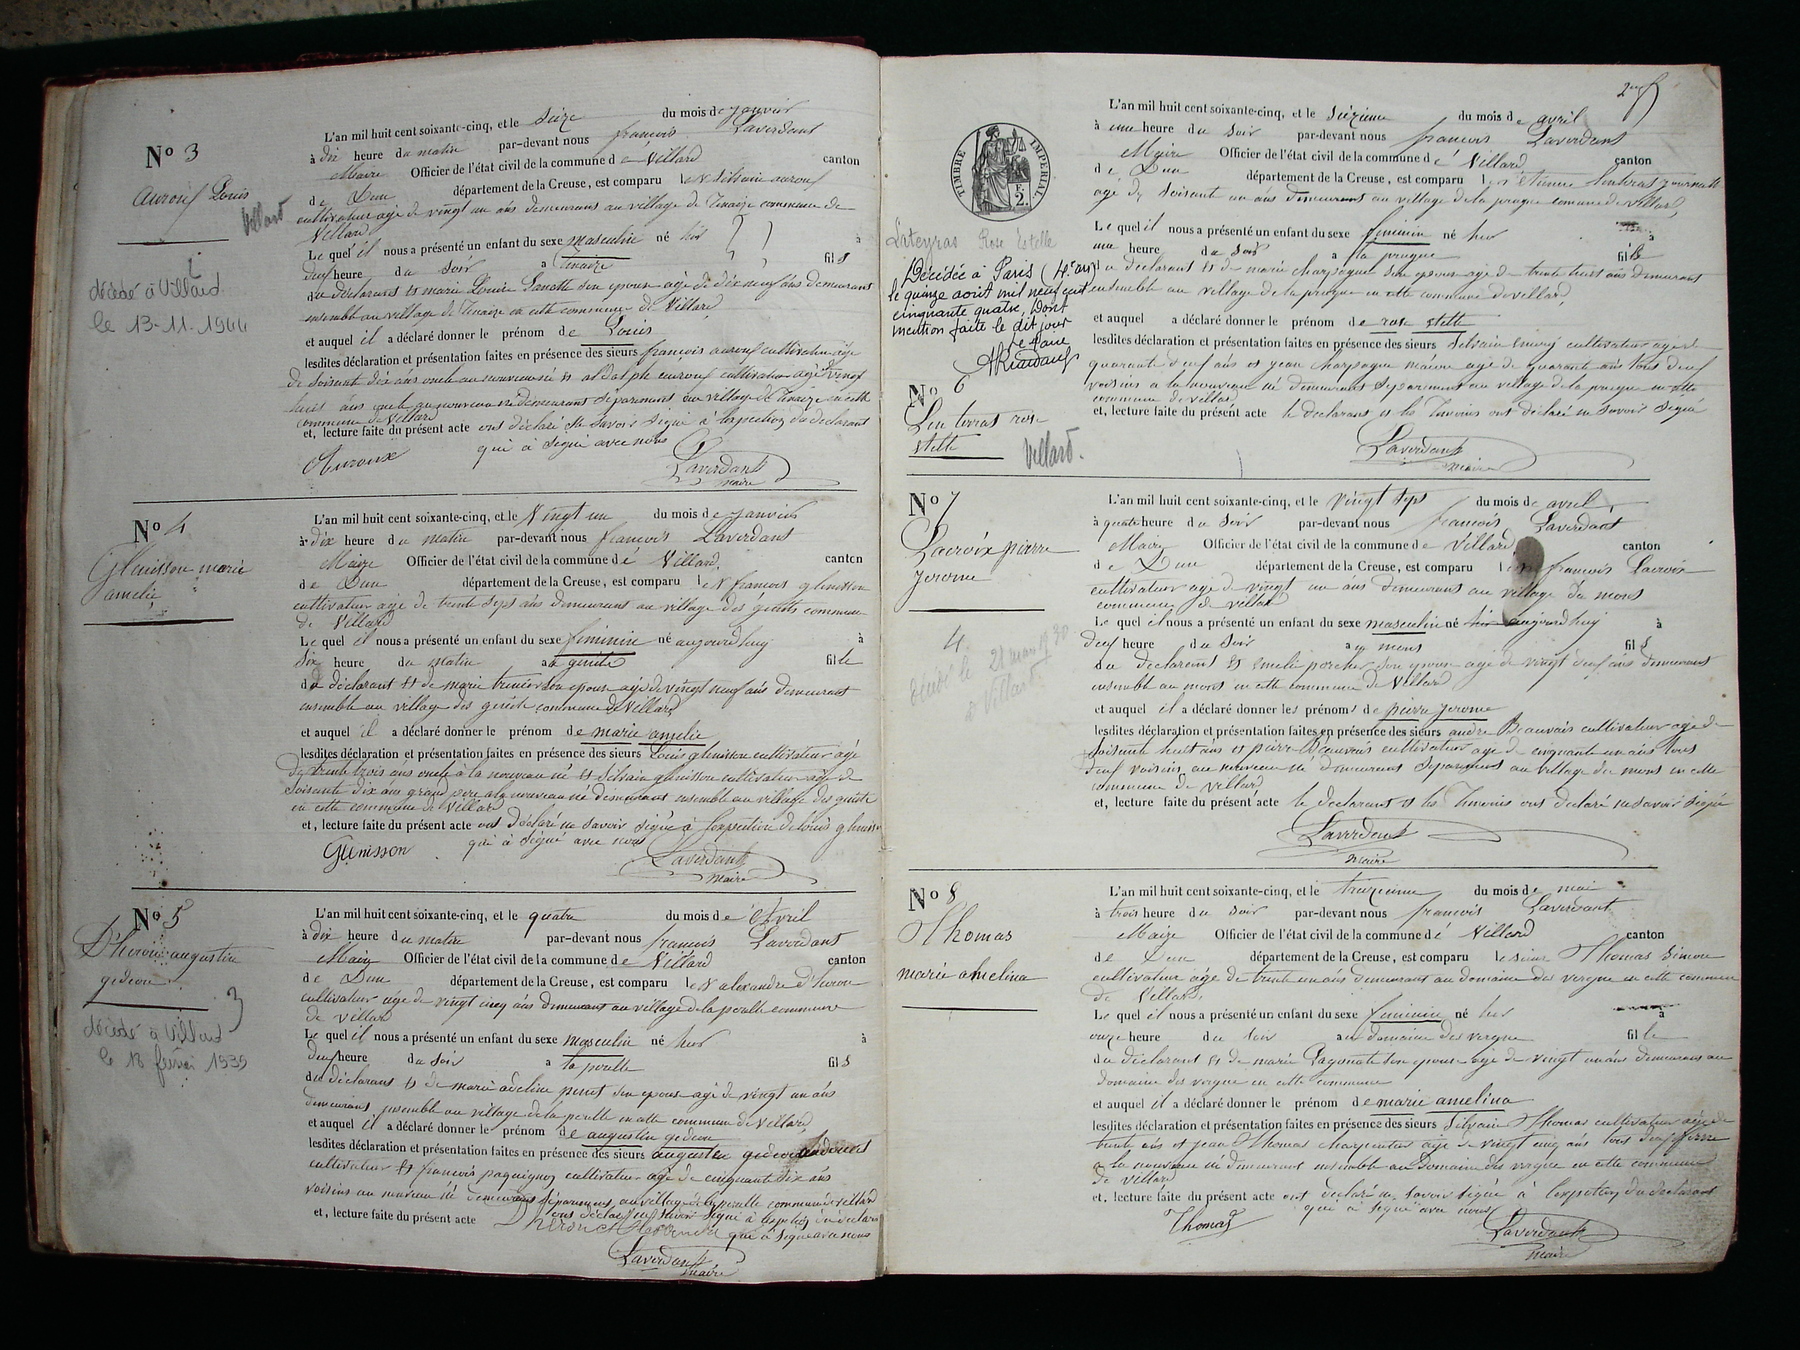 N° 3
Aurouf Louis
Villard
décédé à Villard
le 13-11-1944
L'an mil huit cent soixante-cinq, et le Seize du mois de janvier
à dix heure du matin par-devant nous françois Laverdant
Maire Officier de l'état civil de la commune de Villard canton
de Dun département de la Creuse, est comparu le sr Silvain aurouf
cultivateur agé de vingt un ans demeurant au village de commune de
Villard
Le quel il nous a présenté un enfant du sexe masculin né hier à
deuf heure du Soir a fils
du déclarant et marie Louise Son epouse agé de dix neuf ans demeurant
ensemble au village de en cette commune de Villard
et auquel il a déclaré donner le prénom de Louis
lesdites déclaration et présentation faites en présence des sieurs françois aurouf cultivateur age
de Soisante dix ans oncle au nouveau né et aurouf cultivateur agé vingt
huit ans oncle au nouveau né demeurant Séparément au village de en cette
commune de Villard
et, lecture faite du présent acte ont déclaré Savoir Signé à lexception du declarant
qui à Signé avec nous
Auroux Laverdant
maire
N° 4
Glenisson marie
amelie
L'an mil huit cent soixante-cinq, et le Vingt un du mois de janvier
à dix heure du matin par-devant nous françois Laverdant
Maire Officier de l'état civil de la commune de Villard canton
de Dun département de la Creuse, est comparu le sr françois glenisson
cultivateur age de trente Sept ans demeurant au village des genets commune
de Villard
Le quel il nous a présenté un enfant du sexe féminin né aujourdhuy à
Six heure du matin a genète fille
du déclarant et de marie Son epouse agé de vingt neuf ans demeurant
ensemble au village des genets commune de Villard
et auquel il a déclaré donner le prénom de marie amelie
lesdites déclaration et présentation faites en présence des sieurs Louis glenisson cultivateur agé
de trente trois ans oncle à la nouveau né et Silvain glenisson cultivateur agé de
Soisante dix ans grand pere a la nouveau né demeurant ensemble au village des
en cette commune de Villard
et, lecture faite du présent acte ont déclaré ne savoir Signé à lexception de Louis glenisson
qui à Signé avec nous
Glenisson Laverdant
maire
N° 5
D'heron augustin
gedeon
3
décédé à Villard
le 18 février 1939
L'an mil huit cent soixante-cinq, et le quatre du mois de Avril
à dix heure du matin par-devant nous françois Laverdant
Maire Officier de l'état civil de la commune de Villard canton
de Dun département de la Creuse, est comparu le sr alexandre d'heron
cultivateur age de vingt cinq ans demeurant au village de la commune
de Villard
Le quel il nous a présenté un enfant du sexe masculin né hier à
deuf heure du Soir a fils
du déclarant et de marie adeline Son epouse agé de vingt un ans
demeurant ensemble au village de la en cette commune de Villard
et auquel il a déclaré donner le prénom de augustin gedeon
lesdites déclaration et présentation faites en présence des sieurs augustin gedeon
cultivateur et françois cultivateur agé de cinquante dix ans
voisins au nouveau né demeurant Séparément au village de la commune de villard
ont déclaré ne savoir Signé à lexception du declarant
et, lecture faite du présent acte qui à Signé avec nous
Laverdant
maire
2
TIMBRE IMPÉRIAL
F.
2.
L'an mil huit cent soixante-cinq, et le Seizieme du mois de avril
à une heure du Soir par-devant nous françois Laverdant
Maire Officier de l'état civil de la commune de Villard canton
de Dun département de la Creuse, est comparu le sr Etienne
age de Soisante un ans demeurant au village de la commune de Villard
Le quel il nous a présenté un enfant du sexe féminin né hier à
une heure du Soir a fille
du declarant et de marie charpagne Son epouse agé de trente huit ans demeurant
ensemble au village de la en cette commune de villard
et auquel a déclaré donner le prénom de rose stelle
lesdites déclaration et présentation faites en présence des sieurs Silvain cultivateur agé de
quarante deuf ans et jean charpagne agé de quarante ans tous deuf
voisins a la nouveau né demeurant Séparément au village de la en cette
commune de villard
et, lecture faite du présent acte le declarant et les Temoins ont déclaré ne savoir Signé
Laverdant
maire
Rose Estelle
Décédée à Paris (4e arrt)
le quinze août mil neuf cent
cinquante quatre. Dont
mention faite le dit jour
Le Maire
N° 6
rose
stelle
Villard.
N° 7
Lacroix pierre
jerome
4
décédé le 21 mars 1930
à Villard
L'an mil huit cent soixante-cinq, et le vingt Sept du mois de avril
à quatre heure du Soir par-devant nous françois Laverdant
Maire Officier de l'état civil de la commune de Villard canton
de Dun département de la Creuse, est comparu le françois Lacroix
cultivateur age de vingt un ans demeurant au village du mons
commune de villard
Le quel il nous a présenté un enfant du sexe masculin né aujourdhuy à
deuf heure du Soir a mons fils
du declarant et emelie porcher Son epouse agé de vingt deuf ans demeurant
ensemble au mons en cette commune de Villard
et auquel il a déclaré donner les prénoms de pierre jerome
lesdites déclaration et présentation faites en présence des sieurs andré Beauvais cultivateur age de
Soisante huit ans et pierre Beauvais cultivateur age de cinquante un ans tous
deuf voisins au nouveau né demeurant Séparément au village du mons en cette
commune de villard
et, lecture faite du présent acte le declarant et les Temoins ont declaré ne savoir Signé
Laverdant
maire
N° 8
Thomas
marie amelina
L'an mil huit cent soixante-cinq, et le treizieme du mois de mai
à trois heure du Soir par-devant nous françois Laverdant
Maire Officier de l'état civil de la commune de Villard canton
de Dun département de la Creuse, est comparu le sieur Thomas Simon
cultivateur age de trente un ans demeurant au domaine des vergne en cette commune
de Villard
Le quel il nous a présenté un enfant du sexe féminin né hier à
onze heure du Soir au domaine des vergne fille
du declarant et de marie Son epouse age de vingt un ans demeurant au
domaine des vergne en cette commune
et auquel il a déclaré donner le prénom de marie amelina
lesdites déclaration et présentation faites en présence des sieurs Silvain Thomas cultivateur age de
trente ans et jean Thomas charpentier age de vingt cinq ans tous deuf
a la nouveau né demeurant ensemble au Domaine des vergne en cette commune
de villard
et, lecture faite du présent acte ont declaré ne savoir Signé à lexception du declarant
qui à Signé avec nous
Thomas Laverdant
maire